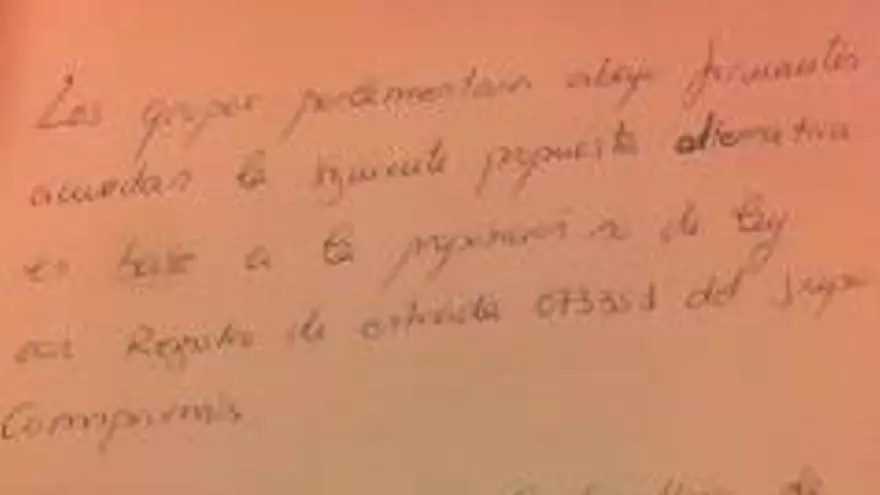 Los grupos parlamentarios abajo firmantes
acuerdan la siguiente propuesta alternativa
en base a la proposición de ley
con Registro de entrada del grupo
Compromís